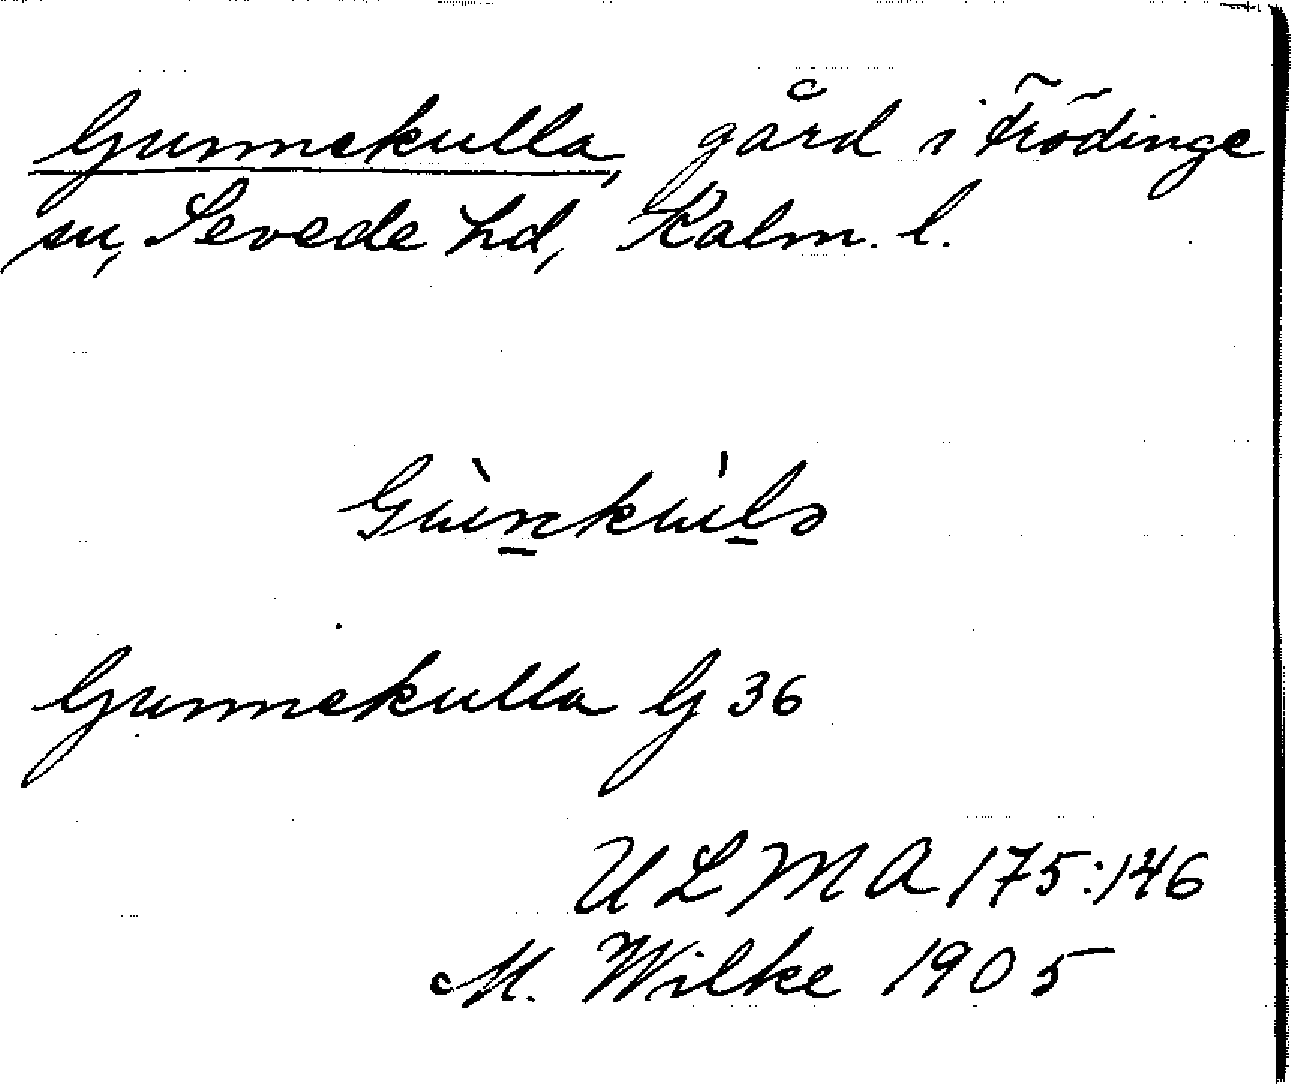 Gunnekulla, gård i Frödinge
sn, Sevede hd, Kalm. l.
Gunnekulla G 36
ULMA 175:146
M. Wilke 1905